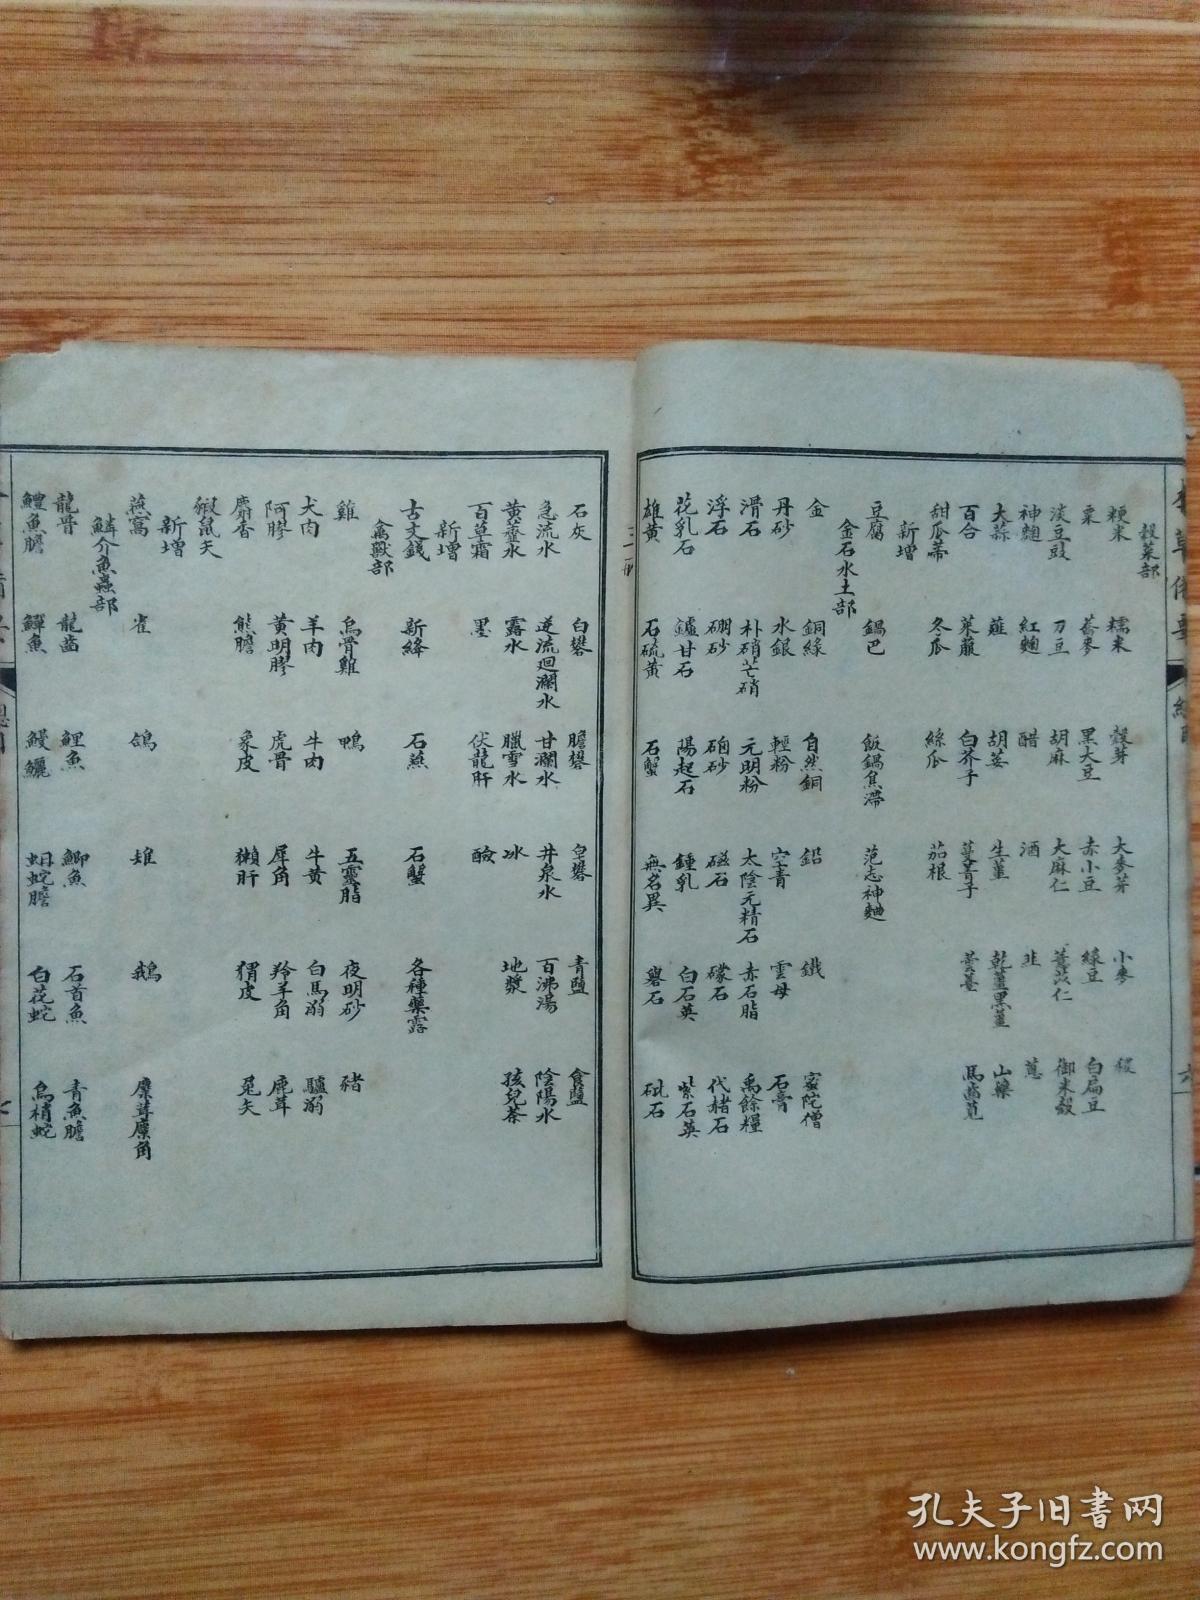 穀菜部
粳米 糯米 穀芽 大麥芽 小麥 稷
粟 蕎麥 黑大豆 赤小豆 綠豆 白扁豆
淡豆豉 刀豆 胡麻 大麻仁 薏苡仁 御米殼
神麯 紅麯 醋 酒 韭 蔥
大蒜 薤 胡荽 生薑 乾薑黑薑 山藥
百合 萊菔 白芥子 蔓菁子 蕓薹 馬齒莧
甜瓜蒂 冬瓜 絲瓜 茄根
新增
豆腐 鍋巴 飯鍋焦滯 范志神麯
金石水土部
金 銅綠 自然銅 鉛 鐵 密陀僧
丹砂 水銀 輕粉 空青 雲母 石膏
滑石 朴硝芒硝 元明粉 太陰元精石 赤石脂 禹餘糧
浮石 硼砂 硇砂 磁石 礞石 代赭石
花乳石 鑪甘石 陽起石 鍾乳 白石英 紫石英
雄黃 石硫黃 石蟹 無名異 礜石 砒石
石灰 白礬 膽礬 皂礬 青鹽 食鹽
急流水 逆流迴瀾水 甘瀾水 井泉水 百沸湯 陰陽水
黃虀水 露水 臘雪水 冰 地漿 孩兒茶
百草霜 墨 伏龍肝 鹼
新增
古文錢 新絳 石燕 石蟹 各種藥露
禽獸部
雞 烏骨雞 鴨 五靈脂 夜明砂 豬
犬肉 羊肉 牛肉 牛黃 白馬溺 驢溺
阿膠 黃明膠 虎骨 犀角 羚羊角 鹿茸
麝香 熊膽 象皮 獺肝 猬皮 兔矢
豭鼠矢
新增
燕窩 雀 鴿 雉 鵝 麋茸麋角
鱗介魚蟲部
龍骨 龍齒 鯉魚 鯽魚 石首魚 青魚膽
鱧魚膽 鱓魚 鰻鱺 蚺蛇膽 白花蛇 烏梢蛇
孔夫子旧书网
www.kongfz.com